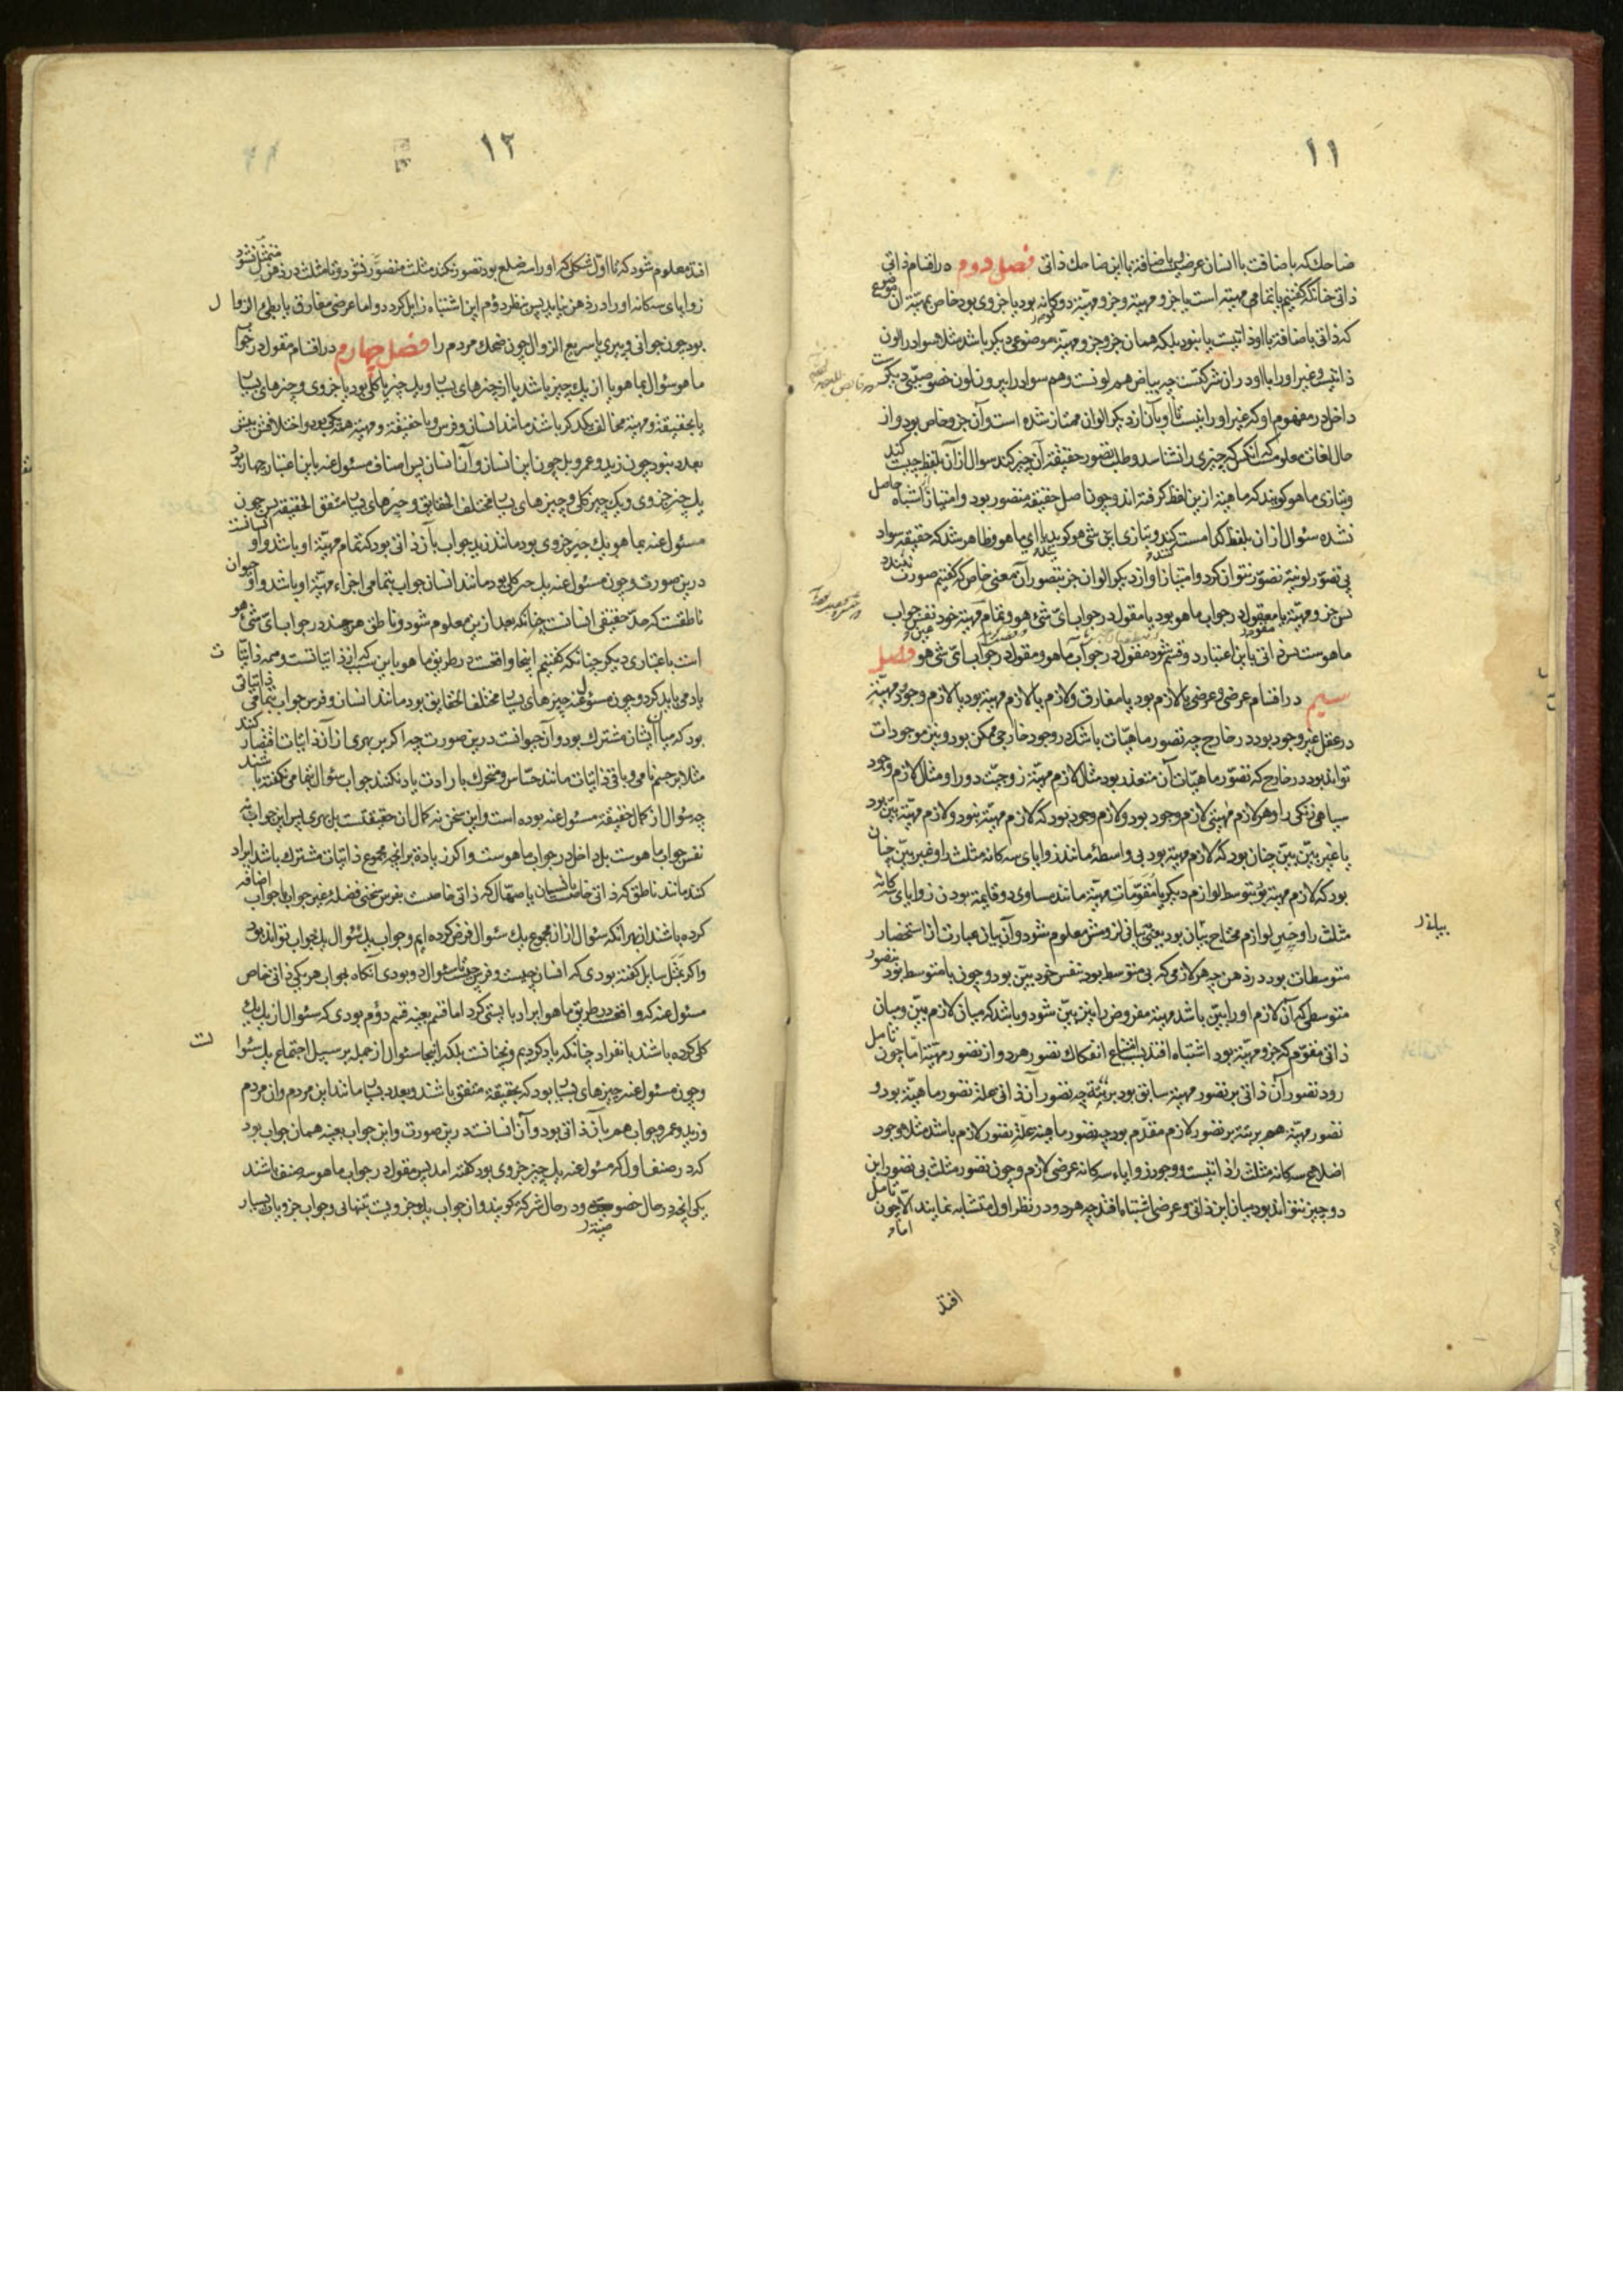 ١١
ضاحک که باضافت با انسان عرضیست باضافة با این ضاحک ذاتی فصل دوم در اقسام ذاتی
ذاتی چنانکه گفتیم یا تمامی مهیّة است یا جزو مهیّة و جزو مهیّة دوگانه بود یا جزوی بود خاص بمهیّة آن
که ذاتی باضافة با او ذاتیست یا نبود بلکه همان جزو جزو مهیّة موضوعی دیگر باشد مثلا سواد را لون
ذاتیست و غیر او را با او در آن شرکتست چه بیاض هم لونست و هم سواد را بیرون لون خصوصیّتی دیگرست
داخل در مفهوم او که غیر او را نیست تا او بآن از دیگر الوان ممتاز شده است و آن جزو خاص بود و از
حال لغات معلومست که آنکس که چیزی را نشناسد و طلب تصور حقیقة آن چیز کند سوال از آن بلفظ چیست کند
و بتازی ما هو گویند که ماهیّة ازین لفظ گرفته اند و چون اصل حقیقة متصور بود و امتیاز از اشباه حاصل
نشده سئوال از آن بلفظ کدامست کنند و بتازی ای شی هو گوید یا ای ما هو و ظاهر شد که حقیقة سواد
بی تصوّر لونیّة تصوّر نتوان کرد و امتیاز او از دیگر الوان جز بتصور آن معنی خاص که گفتیم صورت نبندد
پس جزو مهیّة یا مقول در جواب ما هو بود یا مقول در جواب ایّ شی هو و تمام مهیّة خود نفس جواب
ما هوست پس ذاتی باین اعتبار دو قسم شود مقول در جواب ما هو و مقول در جواب ایّ شی هو فصل
سیم در اقسام عرضی و عرضی یا لازم بود یا مفارق و لازم یا لازم مهیّة بود یا لازم وجود مهیّة
در عقل غیر وجود بود در خارج چه تصور ماهیّات باشد که در وجود خارجی ممکن بود و نیز موجودات
تواند بود در خارج که تصوّر ماهیّات آن متعذر بود مثال لازم مهیّة زوجیّت دو را و مثال لازم وجود
سیاهی زنگی را و هر لازم مهیّتی لازم وجود بود و لازم وجود بود که لازم مهیّة نبود و لازم مهیّة بیّن بود
یا غیر بیّن بیّن چنان بود که لازم مهیّة بود بی واسطة مانند زوایای سه گانه مثلث را و غیر بیّن چنان
بود که لازم مهیّة بود بتوسط لوازم دیگر یا مقوّمات مهیّة مانند مساوی دو قایمة بودن زوایای سه گانه
مثلث را و چنین لوازم محتاج بیان بود یعنی بیانی لزومش معلوم شود و آن بیان عبارت از استحضار
متوسطات بود در ذهن چه هر لازمی که بی متوسط بود بنفس خود بیّن بود و چون با متوسط بود متصور
متوسطی که آن لازم او را بیّن باشد مهیّة مفروض را نیز بیّن شود و باشد که میان لازم بیّن و میان
ذاتی مقوّم که جزو مهیّة بود اشتباه افتد بسبب امتناع انفکاک تصور هر دو از تصور مهیّة امّا چون تامل
رود تصور آن ذاتی بر تصور مهیّة سابق بود برتبة چه تصور آن ذاتی علة تصور ماهیّة بود و
تصور مهیّة هم برتبة بر تصور لازم مقدّم بود چه تصور ماهیة علّة تصور لازم باشد مثلا وجود
اضلاع سه گانه مثلث را ذاتیست و وجود زوایاء سه گانه عرضی لازم و چون تصور مثلث بی تصور این
دو چیز نتواند بود میان این ذاتی و عرضی اشتباه افتد چه هر دو در نظر اول متشابه نمایند الّا چون تامل
افتد
١٢
افتد معلوم شود که تا اوّل شکلی که او را سه ضلع بود تصور نکند مثلث متصوّر نشود و تا مثلث در ذهن متمثّل نشود
زوایای سه گانه او را در ذهن نیاید پس بنظر دوّم این اشتباه زایل گردد و اما عرضی مفارق یا بطیء الزوال
بود چون جوانی و پیری یا سریع الزوال چون ضحک مردم را فصل چهارم در اقسام مقول در جواب
ما هو سئوال بما هو یا از یک چیز باشد یا از چیزهای بسیار و یک چیز یا کلّی بود یا جزوی و چیزهای بسیار
یا بحقیقة و مهیّة مخالف یکدیگر باشد مانند انسان و فرس و یا حقیقة و مهیّة همه یکی بود و اختلاف
بعدد بود چون زید و عمرو بل چون این انسان و آن انسان پس اصناف مسئول عنه باین اعتبار چهار بود
یک چیز جزوی و یک چیز کلی و چیزهای بسیار مختلف الحقایق و چیزهای بسیار متفق الحقیقة پس چون
مسئول عنه بما هو یک چیز جزوی بود مانند زید جواب بآن ذاتی بود که تمام مهیّة او باشد و او انسانست
درین صورت و چون مسئول عنه یک چیز کلی بود مانند انسان جواب بتمامی اجزاء مهیّة او باشد و او حیوان
ناطقست که حدّ حقیقی انسانست چنانکه بعد ازین معلوم شود و ناطق هرچند در جواب ایّ شیء هو
است باعتباری دیگر چنانکه گفتیم اینجا واقعست در طریق ما هو باین سبب که از ذاتیاتست و همه ذاتیات
یاد می باید کرد و چون مسئول عنه چیزهای بسیار مختلف الحقایق بود مانند انسان و فرس جواب بتمامی ذاتیاتی
بود که میان ایشان مشترک بود و آن حیوانست درین صورت چه اگر بر بهری از آن ذاتیات اقتصار کنند
مثلا بر جسم نامی و باقی ذاتیات مانند حسّاس و متحرک بارادت یاد نکنند جواب سئوال بتمامی نگفته باشند
چه سئوال از کمال حقیقة مسئول عنه بوده است و این سخن نه کمال آن حقیقتست بل بهری پس این جواب نه
نفس جواب ما هوست بل داخل در جواب ما هوست و اگر زیادة بر آنچه مجموع ذاتیات مشترک باشد ایراد
کند مانند ناطق که ذاتی خاصست بانسان یا صهّال که ذاتی خاصست بفرس سخنی فضلة غیر جواب با جواب اضافه
کرده باشند از بهر آنکه سئوال از آن مجموع یک سئوال فرض کرده ایم و جواب یک سئوال یک جواب تواند بود
و اگر بمثل سایل گفته بودی که انسان چیست و فرس چیست سئوال دو بودی آنگاه بجواب هر یکی ذاتی خاص
مسئول عنه که واقعست در طریق ما هو ایراد بایستی کرد اما قسم بعینه قسم دوّم بودی که سئوال از یک یک
کلی کرده باشند بانفراد چنانکه یاد کردیم و نه چنانست بلکه اینجا سئوال از جمله بر سبیل اجتماع یک سئوالست
و چون مسئول عنه چیزهای بسیار بود که بحقیقة متفق باشند و بعدد بسیار مانند این مردم و آن مردم
و زید و عمرو جواب هم بآن ذاتی بود و آن انسانست درین صورت و این جواب بعینه همان جواب بود
که در صنف اول که مسئول عنه یک چیز جزوی بود گفته آمد پس مقول در جواب ما هو سه صنف باشند
یکی آنچه در حال خصوصیّة و در حال شرکة گویند و آن جواب یک جزویست بتنهائی و جواب جزویات بسیار